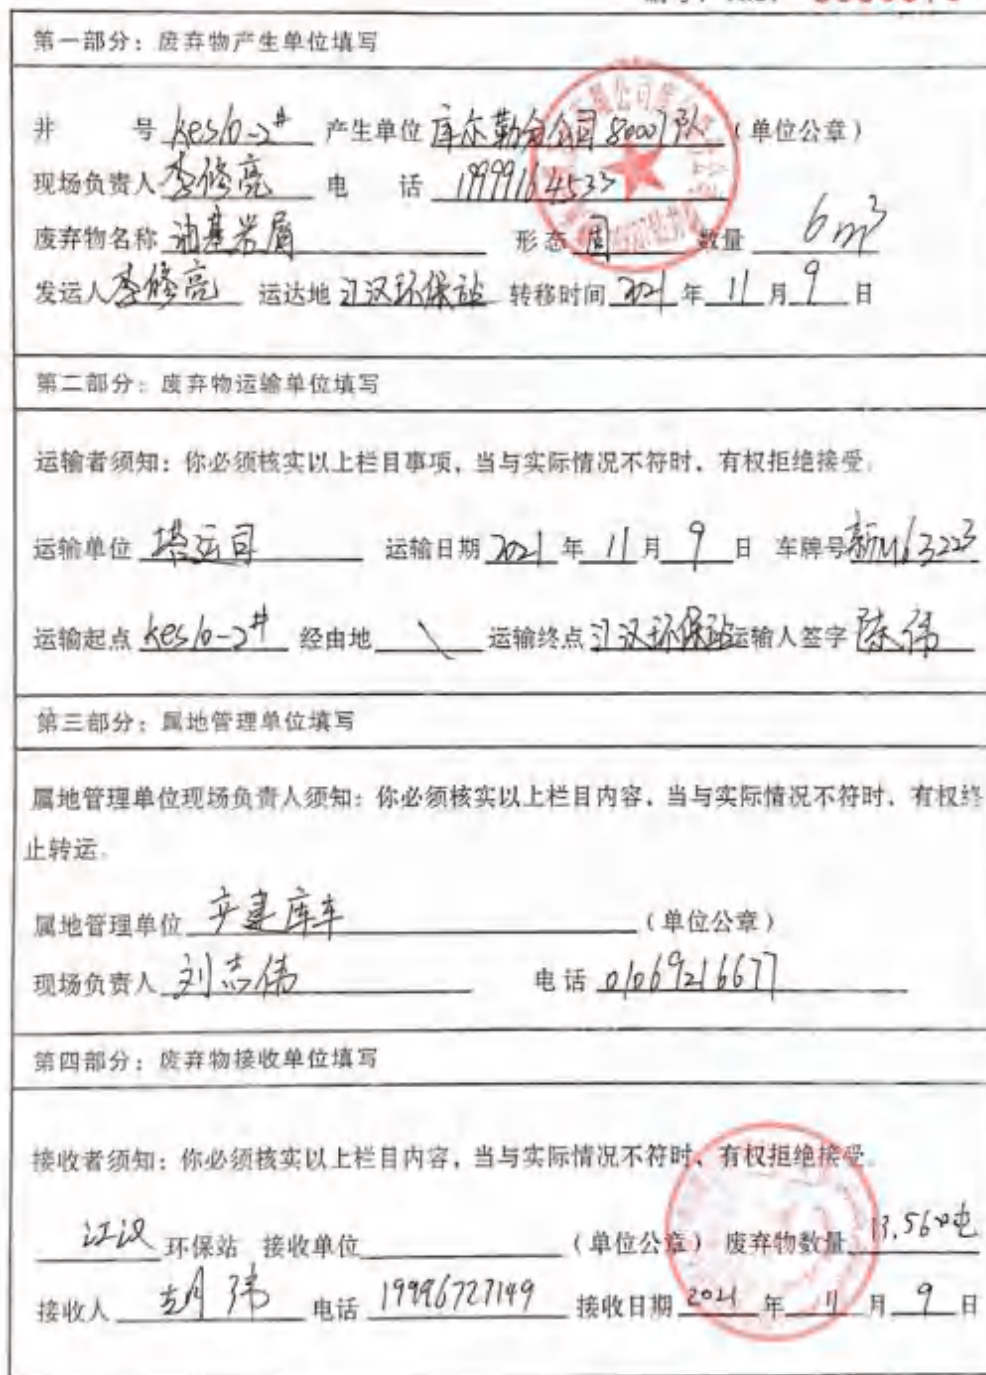 第一部分：废弃物产生单位填写
井 号 kes10-2# 产生单位 库尔勒分公司80007队 （单位公章）
现场负责人 李修亮 电 话 19999164533
废弃物名称 油基岩屑 形态 固 数量 6m³
发运人 李修亮 运达地 江汉环保站 转移时间 2021 年 11 月 9 日
第二部分：废弃物运输单位填写
运输者须知：你必须核实以上栏目事项，当与实际情况不符时，有权拒绝接受。
运输单位 塔运司 运输日期 2021 年 11 月 9 日 车牌号 新M63223
运输起点 kes10-2# 经由地 \ 运输终点 江汉环保站 运输人签字 陈伟
第三部分：属地管理单位填写
属地管理单位现场负责人须知：你必须核实以上栏目内容，当与实际情况不符时，有权终
止转运。
属地管理单位 产建库车 （单位公章）
现场负责人 刘志伟 电话 01069216677
第四部分：废弃物接收单位填写
接收者须知：你必须核实以上栏目内容，当与实际情况不符时，有权拒绝接受。
江汉 环保站 接收单位 （单位公章） 废弃物数量 13.56吨
接收人 胡伟 电话 19996727149 接收日期 2021 年 11 月 9 日